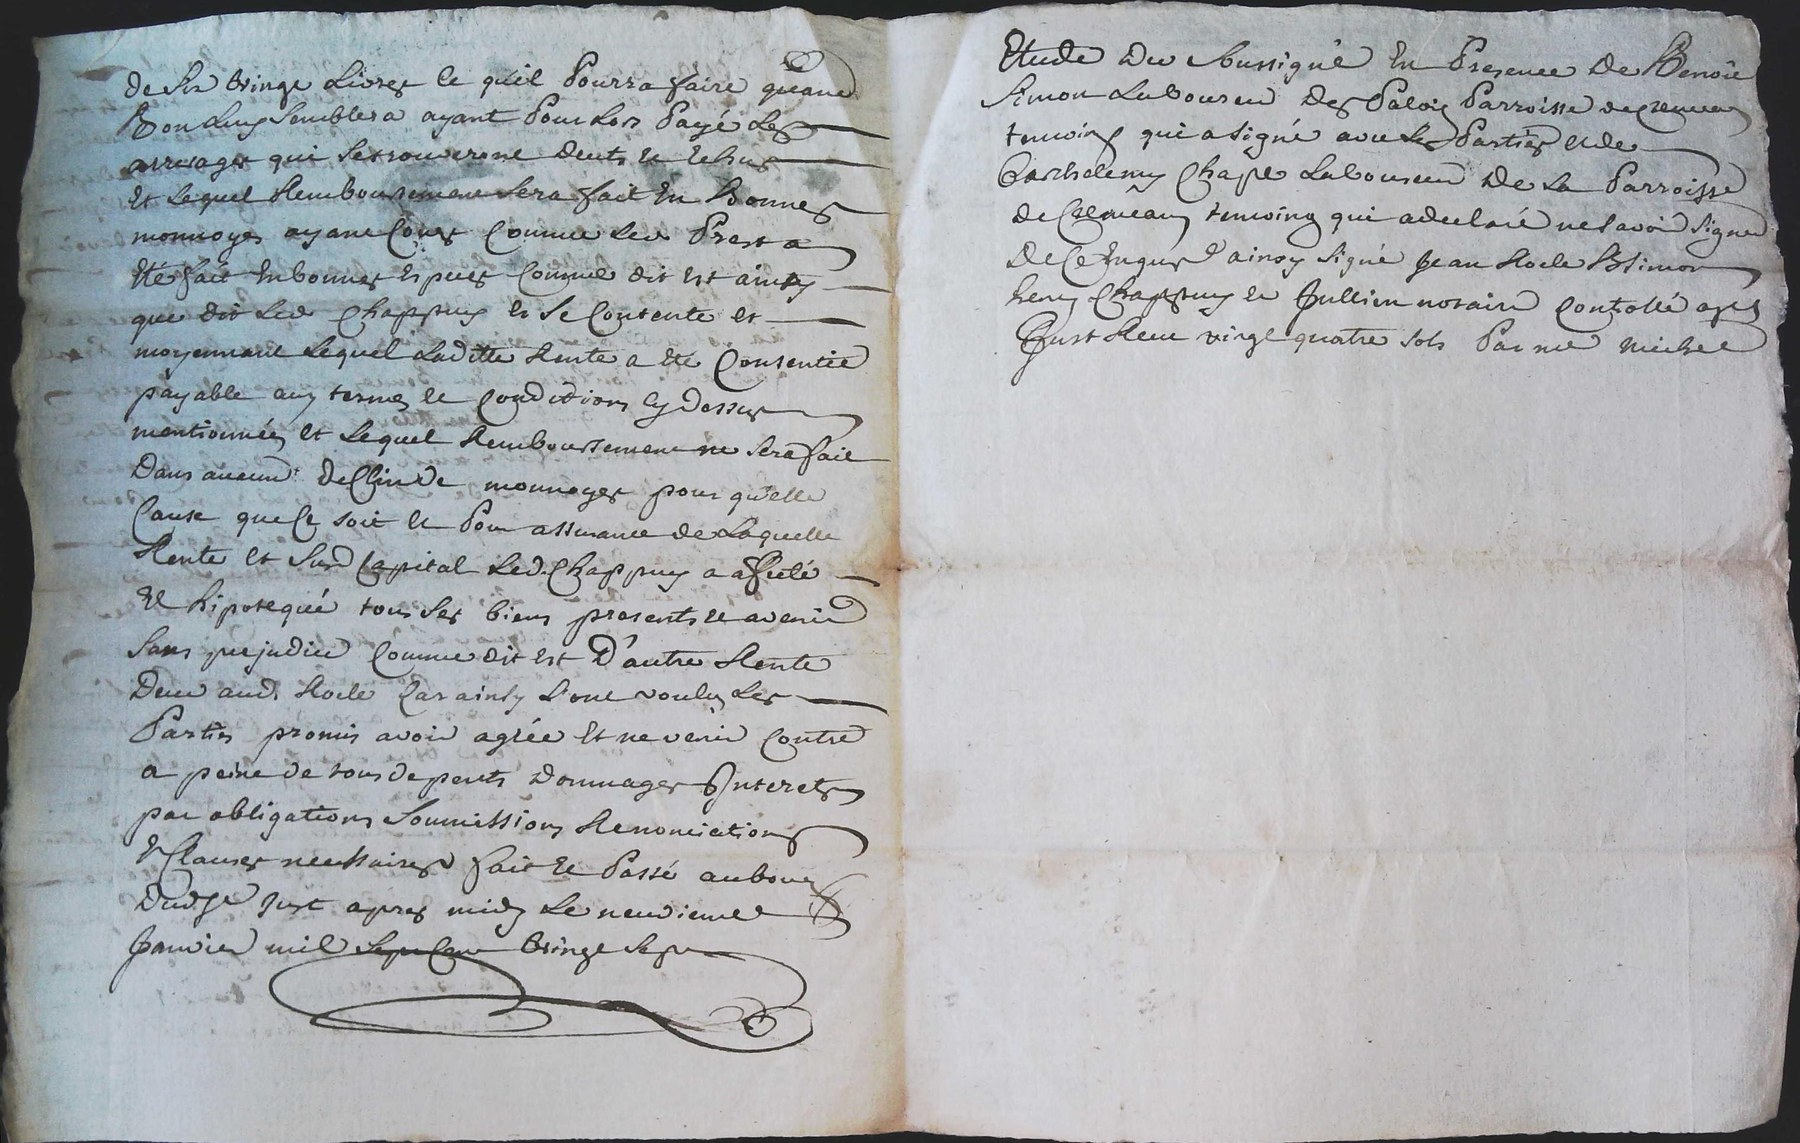 de Six vingt Livres Ce quil Pourra faire quand
Bon Luy Semblera ayant Pour Lors Payé Les
arrerages qui Se trouveront deuts et Echus
Et Lequel Remboursement Sera fait En Bonnes
monnoyes ayant Cours Comme Led Prest a
Eté fait En bonnes Especes Comme dit Est ainsy
que dit Led Chappuy Et Se Contente Et
moyennant Lequel Laditte Rente a Eté Consentie
payable aux termes Et Conditions Cy Dessus
mentionnées Et Lequel Remboursement ne Sera fait
Dans aucun declin de monnoyes pour quelle
Cause que Ce soit Et Pour assurance de Laquelle
Rente Et Susd Capital Led. Chappuy a affecté
Et hipotequé tous Ses biens presents Et avenir
Sans prejudice Comme dit Est D'autre Rente
Deue aud. Rocle Car ainsy L'ont voulu Les
Parties promis avoir agréé Et ne venir Contre
a peine de tous depents Dommages Interets
par obligations Soumissions Renonciations
Et Clauses necessaires fait Et Passé au bourg
Dud St Just apres midy Le neuvieme
Janvier mil Sept Cent vingt Sept
Etude Du Soussigné En Presence De Benoit
Simon Laboureur des Parroisse de Cremeaux
temoins qui a signé avec Les Parties Et de
Barthelemy Chape Laboureur De La Parroisse
de Cremeaux temoins qui a declaré ne Savoir Signer
De Ce Enquis ainsy Signé Jean Rocle B Simon
heny Chappuy Et Jullien notaire Controllé a St
Just Receu vingt quatre sols Par me Michel